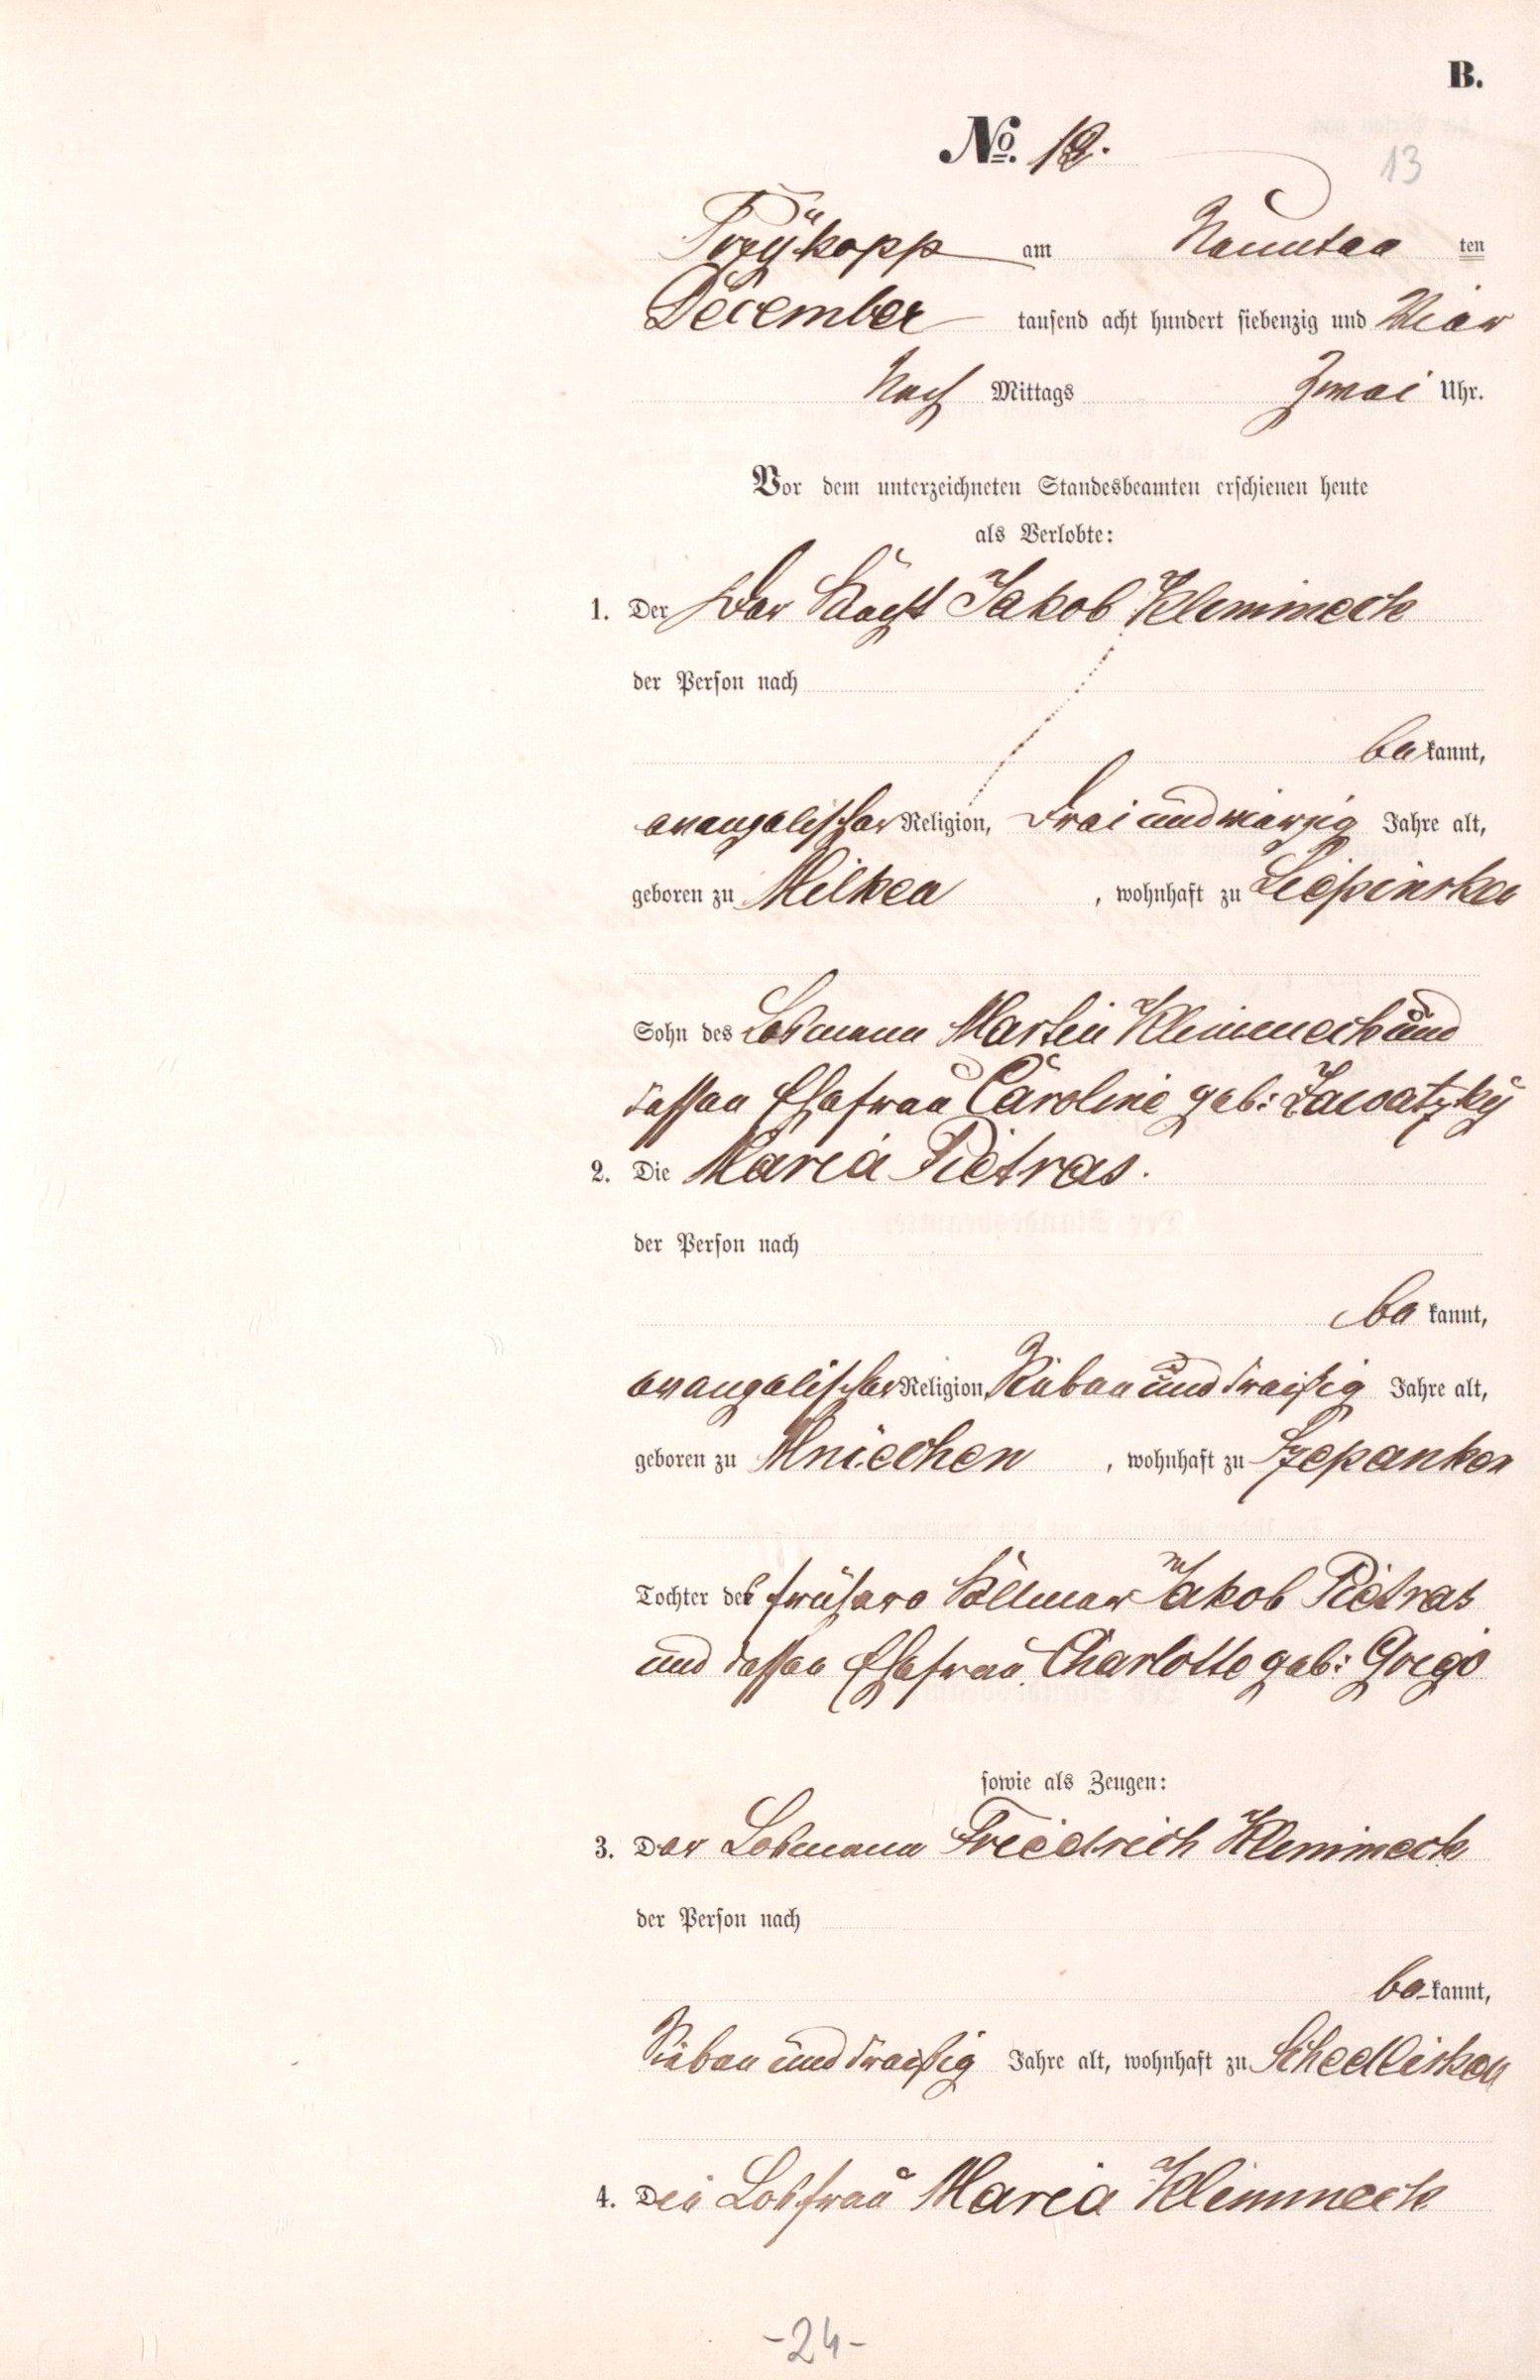 B.
No. 12.
13
Przykopp am Neunten ten
December tausend acht hundert siebenzig und Vier
Nach Mittags Zwei Uhr.
Vor dem unterzeichneten Standesbeamten erschienen heute
als Verlobte:
1. Der Der Knecht Jakob Klimmeck
der Person nach
bekannt,
evangelischer Religion, Drei und vierzig Jahre alt,
geboren zu Milken, wohnhaft zu Lipinsken
Sohn des Losmann Martin Klimmeck und
dessen Ehefrau Caroline geb: Zawatzky
2. Die Maria Pietras.
der Person nach
be kannt,
evangelischer Religion, Sieben und dreißig Jahre alt,
geboren zu Mniechen, wohnhaft zu Szepanken
Tochter des frühere Köllmer Jakob Pietras
und dessen Ehefrau Charlotte geb: Grego
sowie als Zeugen:
3. Der Losmann Friedrich Klimmeck
der Person nach
be-kannt,
Sieben und dreißig Jahre alt, wohnhaft zu Schedlisken
4. Die Losfrau Maria Klimmeck
-24-